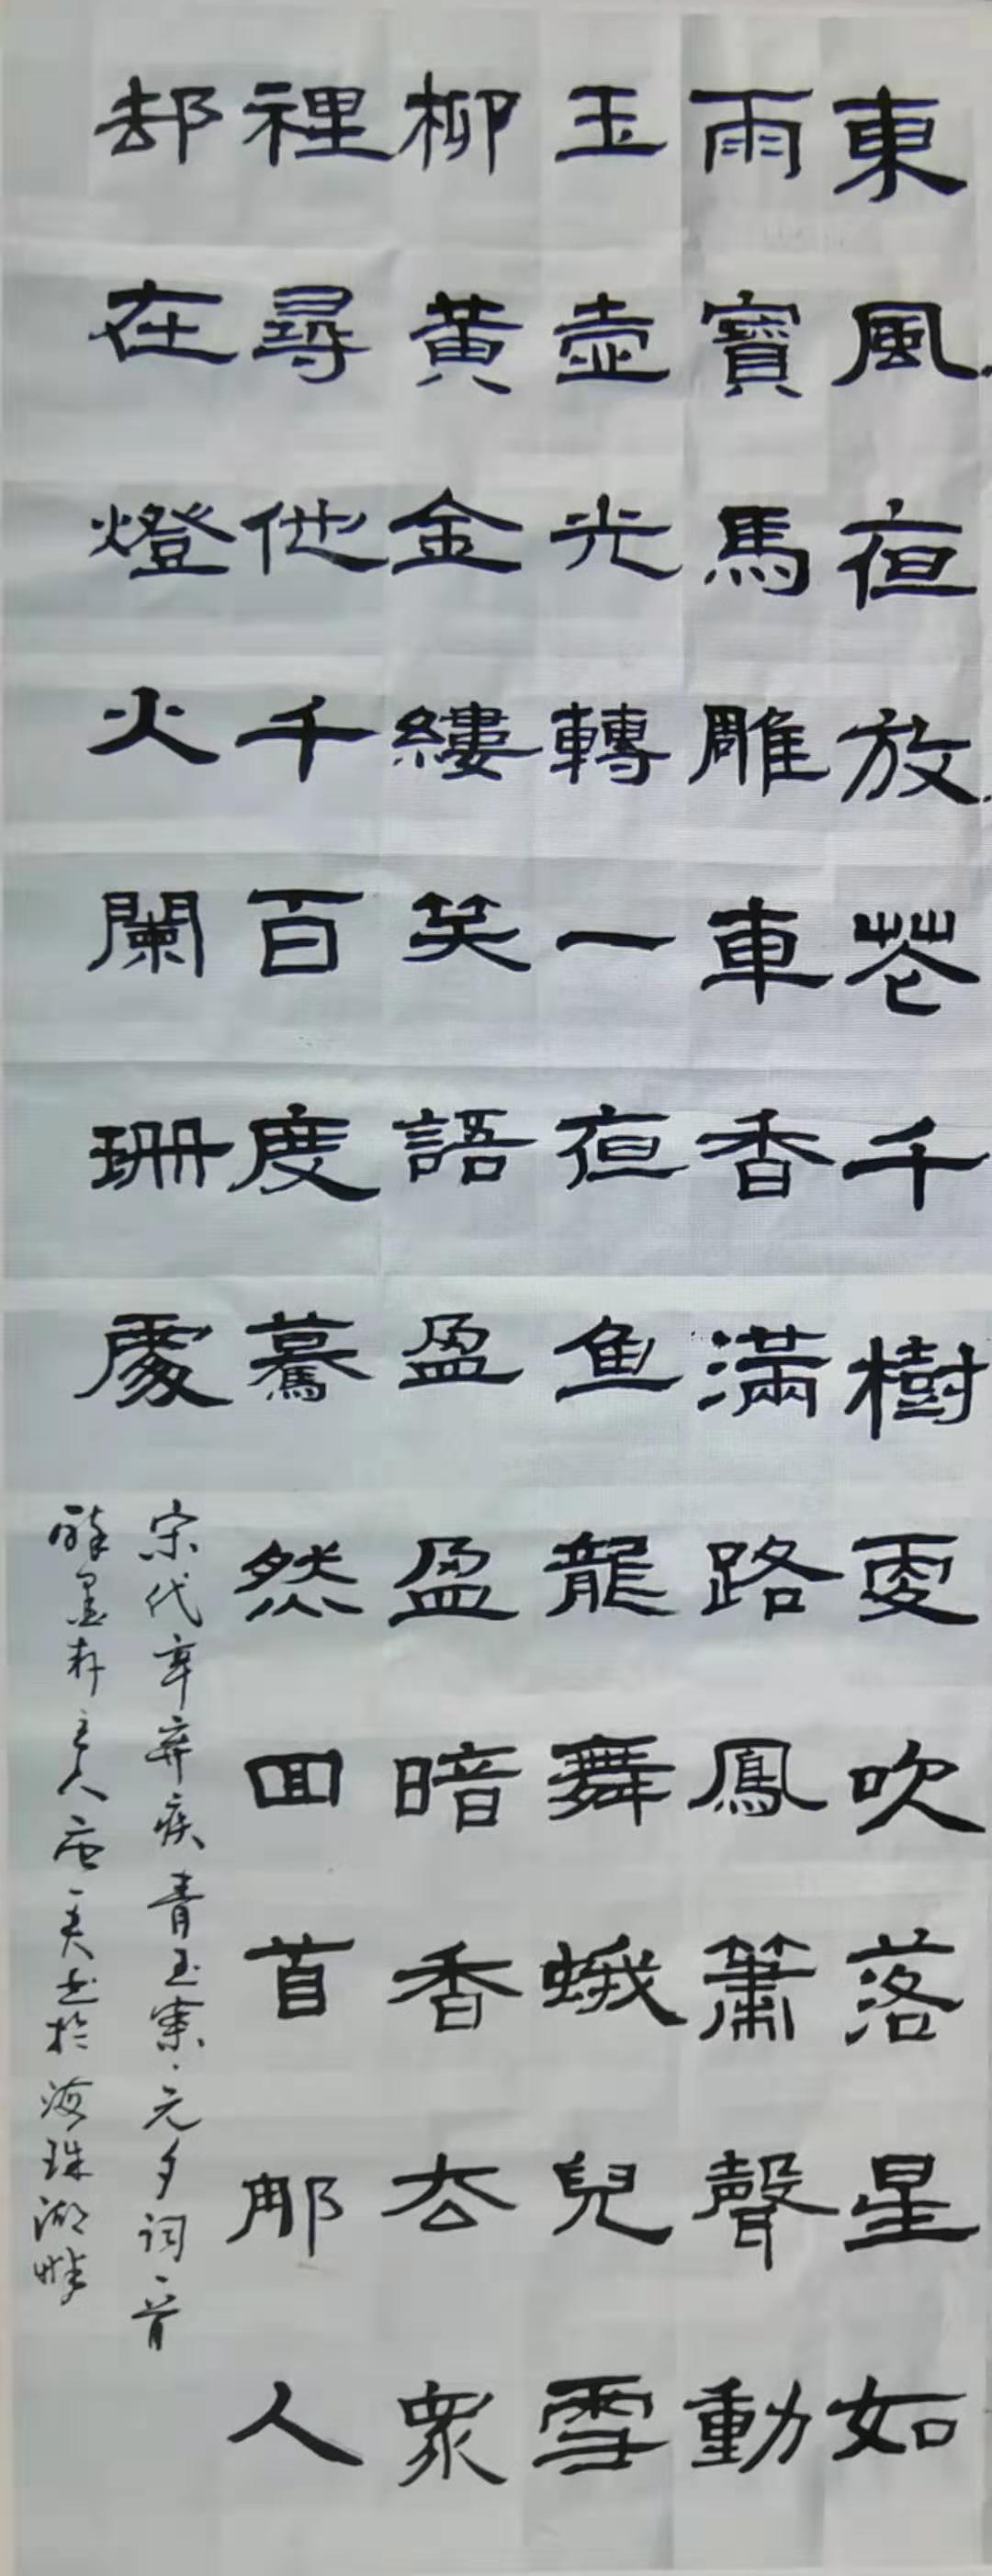 東風夜放花千樹更吹落星如
雨寶馬雕車香滿路鳳簫聲動
玉壺光轉一夜鱼龍舞蛾兒雪
柳黄金縷笑語盈盈暗香去衆
裡尋他千百度驀然回首那人
却在燈火闌珊處
宋代辛弃疾青玉案·元夕词一首
醉墨轩主人 书於海珠湖畔